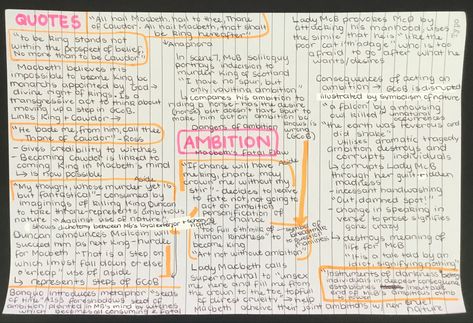 QUOTES
"to be King stands not
within the prospect of belief,
No more than to be Cawdor"
Macbeth believes it is
impossible to become King because
monarchs appointed by God →
divine right of Kings. Is
transgressive act to think about
moving up a step in GCOB
Links King + Cawdor →
"He bade me, from him, call thee
Thane of Cawdor" - Ross
- Gives credibility to witches
- Becoming Cawdor is linked to
coming King in Macbeth's mind
↳ is now possible
Aside
"My thought, whose murder yet is
but fantastical" - consumed by
imaginings of killing King Duncan
to take throne - regrets ambitious
nature "against use of nature"
Duncan announces Malcolm will
succeed him as next King - hurdle
for Macbeth - "That is a step on
which I must fall down or else
o'erleap" use of aside
↳ represents steps of GCOB
Banquo introduces metaphor "seeds
of time" Also foreshadows seed of
ambition planted in MB's mind by witches
which becomes all consuming + fatal
"All hail Macbeth, hail to thee, Thane
of Cawdor. All hail Macbeth, that shalt
be King hereafter"
↳ Anaphora
In scene 7, McB soliloquy
betrays indecision to
murder King of Scotland
"I have no spur, but
only vaulting ambition"
↳ compares his ambition to
riding a horse - has the desire
(horse) but doesn't have spur to
make the horse move
Dangers of ambition
AMBITION
Macbeth's Fatal Flaw
Aside
"If chance will have
me king, chance may
crown me without my
stir" - decides to leave
to fate, not going to
act on ambition
personification of
chance
"too full o'th milk of
human kindness" to
become King
"Art not without ambition"
Lady Macbeth calls
supernatural to "unsex
me here and fill me from
the crown to the toe topfull
of direst cruelty" → help
Macbeth achieve their joint ambitions
Lady McB provokes McB by
attacking his manhood, uses
the simile that he is "like the
poor cat i'th'adage" who is too
afraid to go after what he
wants/desires
Consequences of acting on
ambition → GCOB is disrupted
illustrated by symbolism of nature
"a falcon" by a mousing
owl killed
"the earth was feverous and
did shake"
utilises dramatic tragedy
ambition destroys and
corrupts individuals
↳ corrupts Lady McB
through her guilt-laden
madness
- incessant handwashing
- "Out damned spot!"
- change in speaking in
verse to prose signifies
gone crazy
↳ destroys meaning of
life for McB
- "it is a tale told by an
idiot, signifying nothing"
"Instruments of darkness